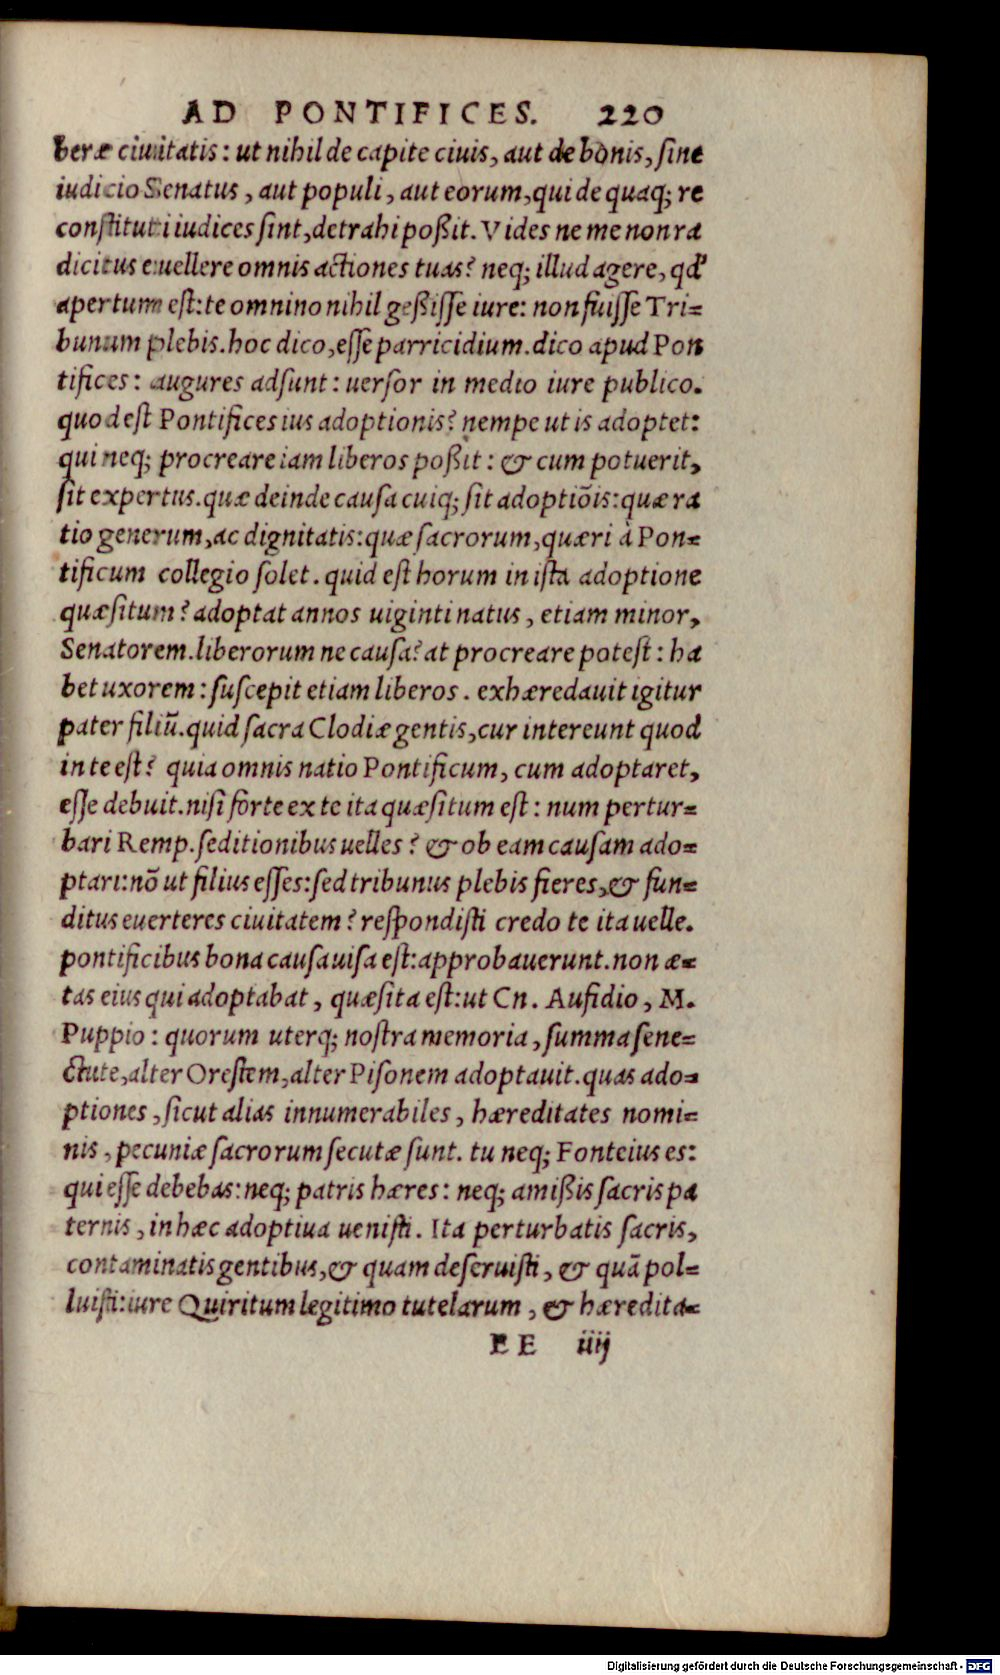 AD PONTIFICES. 220
beræ ciuitatis: ut nihil de capite ciuis, aut de bonis, sine
iudicio Senatus, aut populi, aut eorum, qui de quaq; re
constituti iudices sint, detrahi poßit. Vides ne me non ra
dicitus euellere omnis actiones tuas? neq; illud agere, qđ
apertum est: te omnino nihil geßisse iure: non fuisse Tri=
bunum plebis. hoc dico, esse parricidium. dico apud Pon
tifices: augures adsunt: uersor in medio iure publico.
quod est Pontifices ius adoptionis? nempe ut is adoptet:
qui neq; procreare iam liberos poßit: & cum potuerit,
sit expertus. quæ deinde causa cuiq; sit adoptiõis: quæ ra
tio generum, ac dignitatis: quæ sacrorum, quæri à Pon=
tificum collegio solet. quid est horum in ista adoptione
quæsitum? adoptat annos uiginti natus, etiam minor,
Senatorem. liberorum ne causa? at procreare potest: ha
bet uxorem: suscepit etiam liberos. exhæredauit igitur
pater filiũ. quid sacra Clodiæ gentis, cur intereunt quod
in te est? quia omnis natio Pontificum, cum adoptaret,
esse debuit. nisi forte ex te ita quæsitum est: num pertur=
bari Remp. seditionibus uelles? & ob eam causam ado=
ptari: nõ ut filius esses: sed tribunus plebis fieres, & fun=
ditus euerteres ciuitatem? respondisti credo te ita uelle.
pontificibus bona causa uisa est: approbauerunt. non æ=
tas eius qui adoptabat, quæsita est: ut Cn. Aufidio, M.
Puppio: quorum uterq; nostra memoria, summa sene=
ctute, alter Orestem, alter Pisonem adoptauit. quas ado=
ptiones, sicut alias innumerabiles, hæreditates nomi=
nis, pecuniæ sacrorum secutæ sunt. tu neq; Fonteius es:
qui esse debebas: neq; patris hæres: neq; amißis sacris pa
ternis, in hæc adoptiua uenisti. Ita perturbatis sacris,
contaminatis gentibus, & quam deseruisti, & quã pol=
luisti: iure Quiritum legitimo tutelarum, & hæredita=
EE iiij
Digitalisierung gefördert durch die Deutsche Forschungsgemeinschaft - DFG